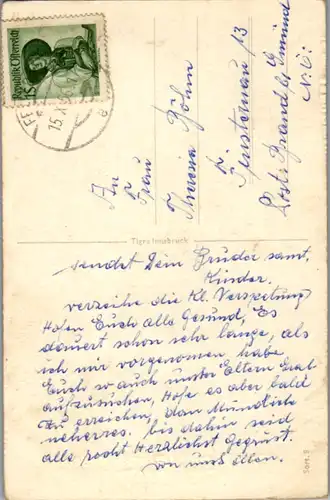 Republik Österreich
1S
15. X.
An
Frau
Theresia Böhm
Finsternau 13
Post: Brand b/ Gmünd
N.Ö.
Tigra Innsbruck
sendet Dein Bruder samt
Kinder.
verzeihe die Kl. Verspetung
Hofen Euch alle Gesund, Es
dauert schon sehr lange, als
ich mir vorgenomen habe
Euch so auch unster Eltern Grab
aufzusichen, Hofe es aber bald
zu erreichen, dan Mündlich
neherres. bis dahin seid
alle recht Herzlichst Gegrüst.
von uns allen.